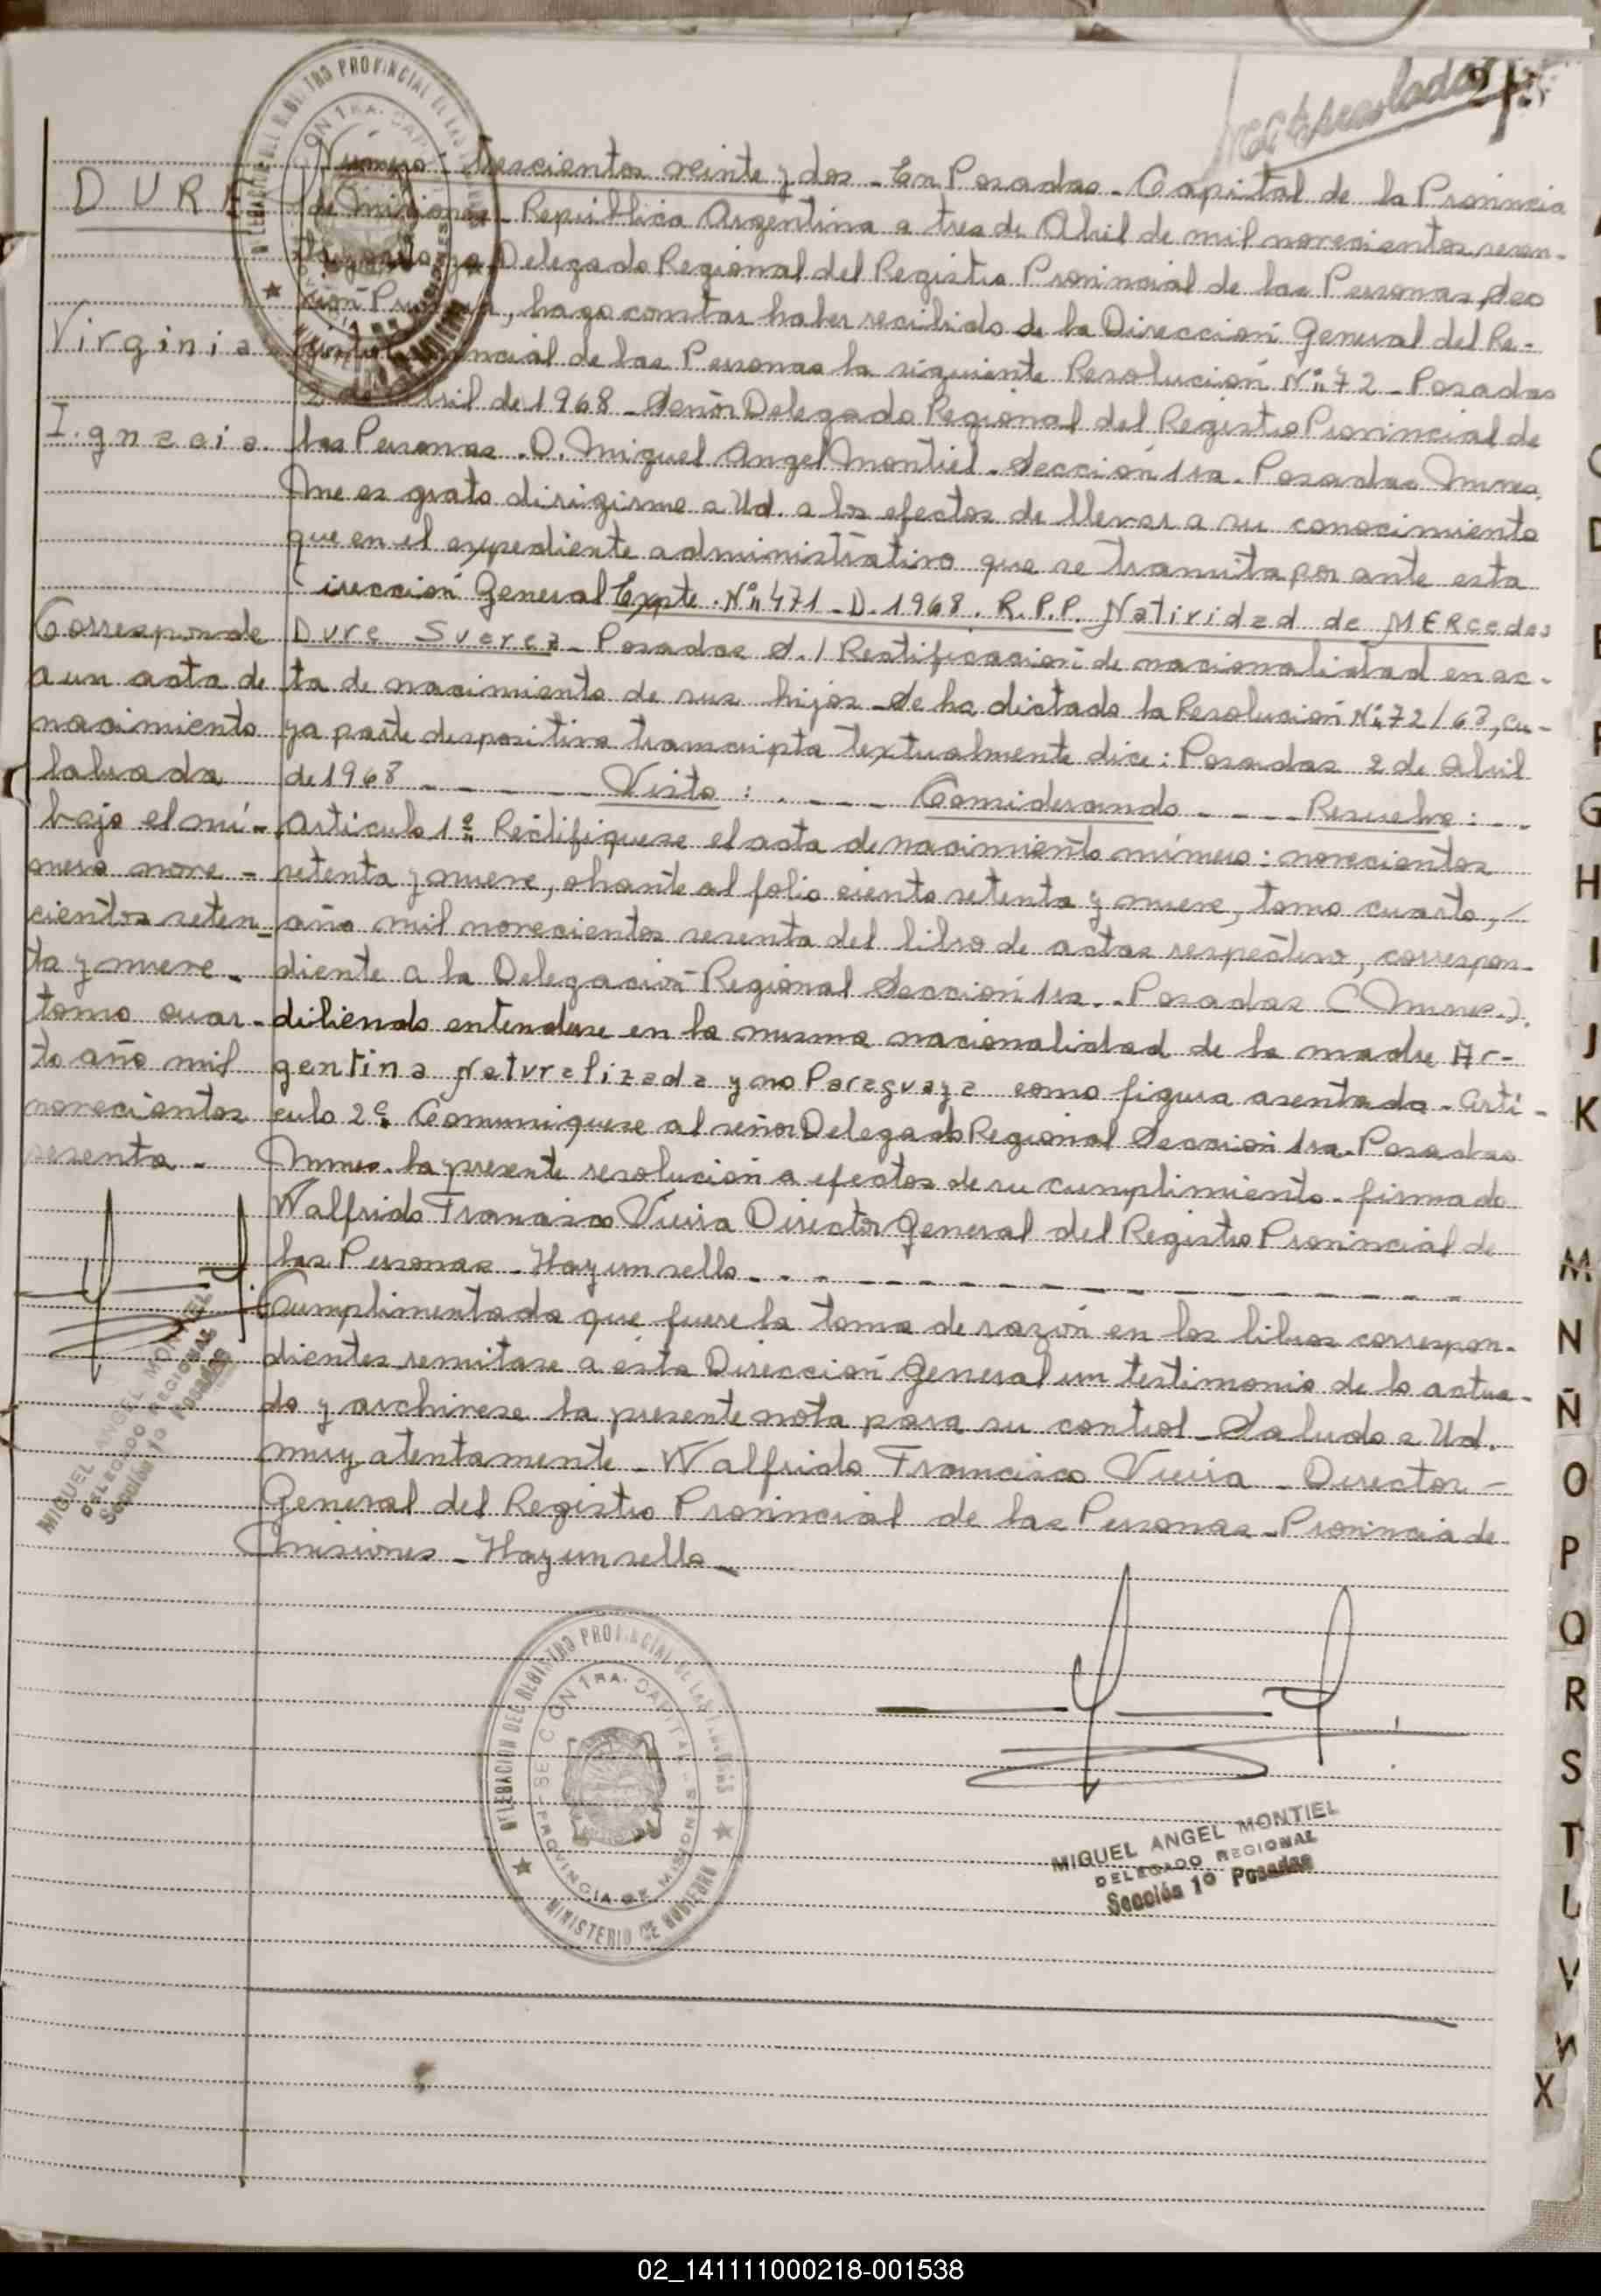 DURE
Virginia
Ignacia.
Corresponde
a un acta de
nacimiento
labrada
bajo el nú-
mero nove-
cientos seten-
ta y nueve.
tomo cuar-
to año mil
novecientos
sesenta.
MIGUEL ANGEL MONTIEL
DELEGADO REGIONAL
Sección 1º Posadas
Número: trescientos veinte y dos - En Posadas - Capital de la Provincia
de Misiones - República Argentina a tres de Abril de mil novecientos sesen-
ta y ocho, yo, Delegado Regional del Registro Provincial de las Personas, Sec
ción Primera, hago constar haber recibido de la Dirección General del Re-
gistro Provincial de las Personas la siguiente Resolución Nº 72 - Posadas
2 de Abril de 1968 - Señor Delegado Regional del Registro Provincial de
las Personas . D. Miguel Angel Montiel - Sección 1ra. Posadas Mnes.
Me es grato dirigirme a Ud. a los efectos de llevar a su conocimiento
que en el expediente administrativo que se tramita por ante esta
Dirección General Expte. Nº 471 - D - 1968. R.P.P. Natividad de MERcedes
Dure Suarez - Posadas S./ Rectificación de nacionalidad en ac-
ta de nacimiento de sus hijos - Se ha dictado la Resolución Nº 72/68, cu-
ya parte despositiva transcripta textualmente dice: Posadas 2 de Abril
de 1968 - - - - - - Visto : . - - - - Considerando - - - - Resuelve : - -
Artículo 1º Rectifiquese el acta de nacimiento número: novecientos
setenta y nueve, obrante al folio ciento setenta y nueve, tomo cuarto, /
año mil novecientos sesenta del libro de actas respectivo, correspon-
diente a la Delegación Regional Sección 1ra. - Posadas (Mnes.).
debiendo entenderse en la misma nacionalidad de la madre Ar-
gentina Naturalizada y no Paraguaya como figura asentado - Artí-
culo 2º. Comuníquese al señor Delegado Regional Sección 1ra. Posadas
Mnes. la presente resolución a efectos de su cumplimiento - firmado
Walfrido Francisco Vieira Director General del Registro Provincial de
las Personas - Hay un sello - - - - - - - - - - - - - -
Cumplimentada que fuere la toma de razón en los libros correspon-
dientes remitase a ésta Dirección General un testimonio de lo actua-
do y archivese la presente nota para su control - Saludo a Ud.
muy atentamente - Walfrido Francisco Vieira - Director -
General del Registro Provincial de las Personas - Provincia de
Misiones - Hay un sello -
DELEGACION DEL REGISTRO PROVINCIAL DE LAS PERSONAS
SECCION 1RA. CAPITAL - PROVINCIA DE MISIONES
MINISTERIO DE GOBIERNO
MIGUEL ANGEL MONTIEL
DELEGADO REGIONAL
Sección 1º Posadas
G
H
I
J
K
M
N
Ñ
O
P
Q
R
S
T
U
V
W
X
02_141111000218-001538